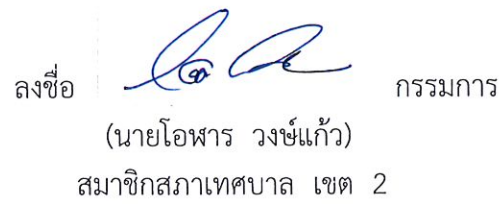 ลงชื่อ กรรมการ
(นายโอฬาร วงษ์แก้ว)
สมาชิกสภาเทศบาล เขต 2